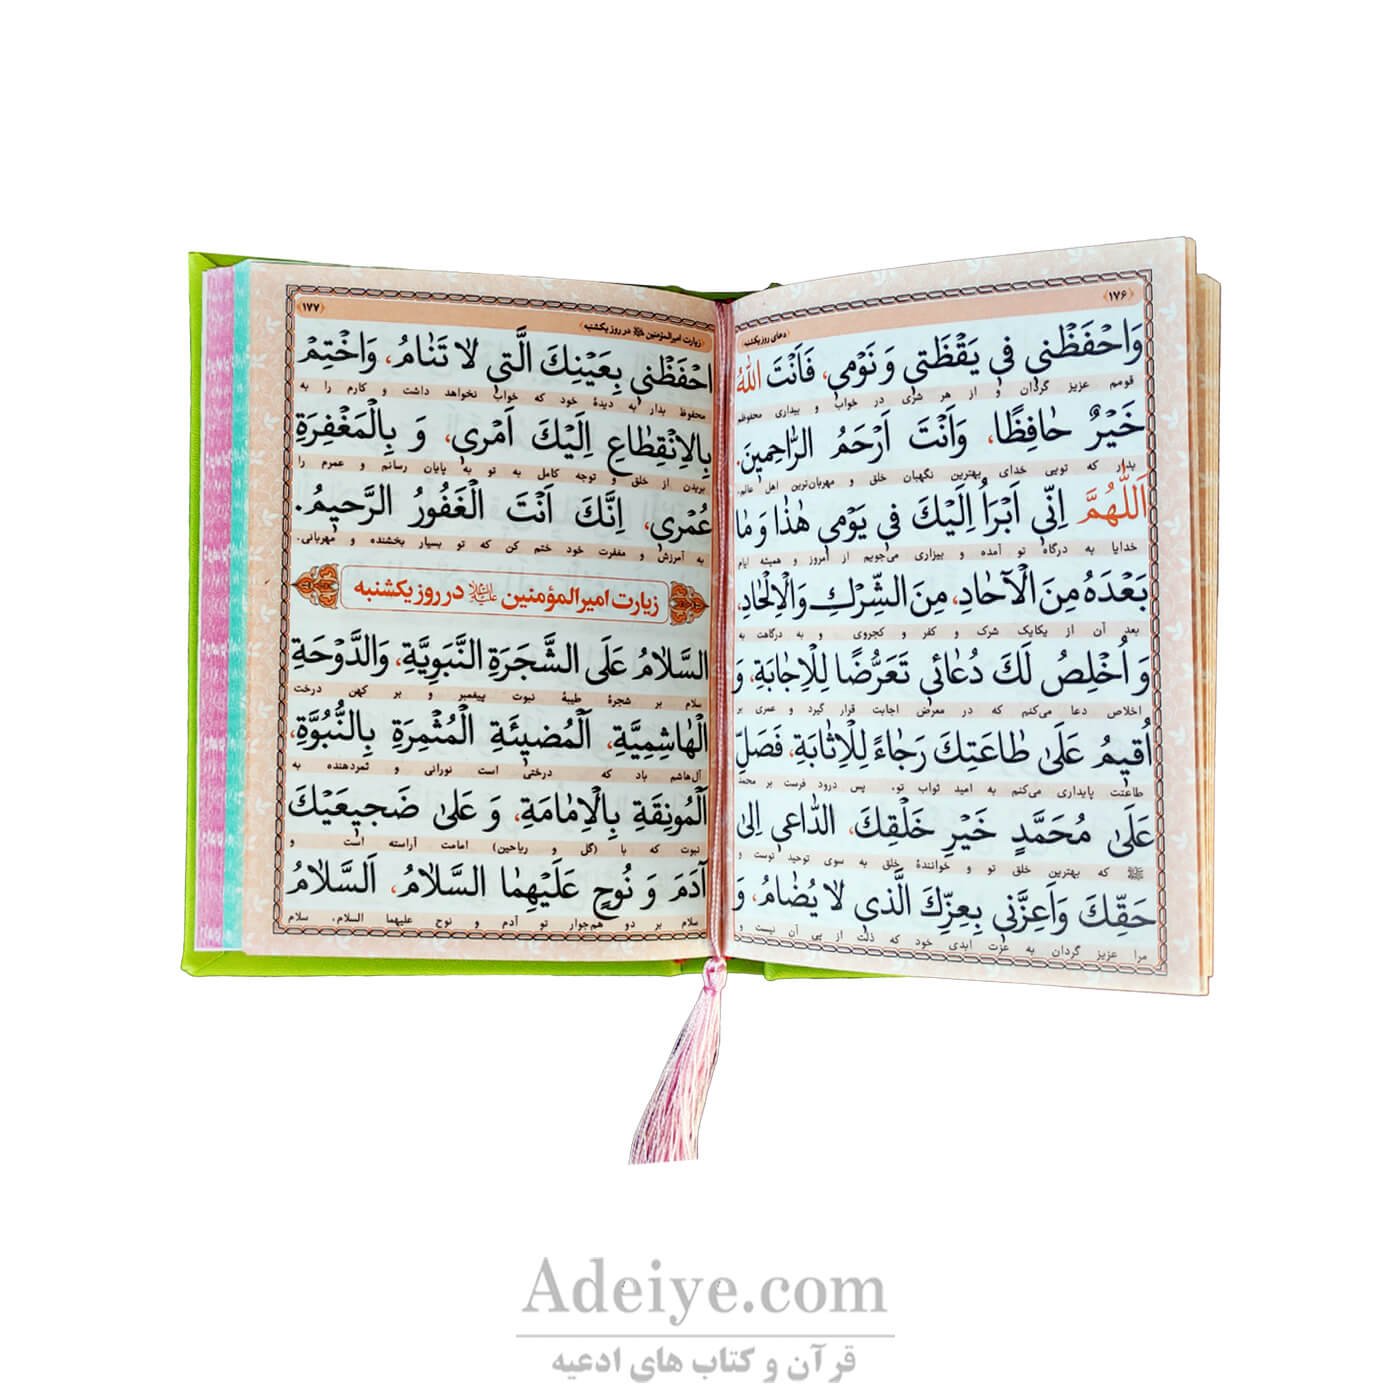 ﴿۱۷۶﴾
﴿دعای روز یکشنبه﴾
وَاحْفَظْنی فی یَقْظَتی وَ نَوْمی، فَاَنْتَ اللّٰهُ
قومم عزیز گردان و از هر شرّی در خواب و بیداری محفوظم
خَیْرٌ حٰافِظًا، وَاَنْتَ اَرْحَمُ الرّٰاحِمینَ.
بدار که تویی خدای بهترین نگهبان خلق و مهربان‌ترین اهل عالم.
اَللّٰهُمَّ اِنّی اَبْرَاُ اِلَیْكَ فی یَوْمی هٰذٰا وَ مٰا
خدایا به درگاه تو آمده و بیزاری می‌جویم از امروز و همیشه ایام
بَعْدَهُ مِنَ الْآحٰادِ، مِنَ الشِّرْكِ وَالْاِلْحٰادِ،
بعد آن از یکایک شرک و کفر و کجروی و به درگاهت به
وَ اُخْلِصُ لَكَ دُعٰائی تَعَرُّضًا لِلْاِجٰابَةِ، وَ
اخلاص دعا می‌کنم که در معرض اجابت قرار گیرد و عمری بر
اُقیمُ عَلیٰ طٰاعَتِكَ رَجٰاءً لِلْاِثٰابَةِ، فَصَلِّ
طاعتت پایداری می‌کنم به امید ثواب تو. پس درود فرست بر محمد
عَلیٰ مُحَمَّدٍ خَیْرِ خَلْقِكَ، الدّٰاعی اِلیٰ
ﷺ که بهترین خلق تو و خوانندهٔ خلق به سوی توحید توست و
حَقِّكَ وَاَعِزَّنی بِعِزِّكَ الَّذی لٰا یُضٰامُ، وَ
مرا عزیز گردان به عزت ابدی خود که ذلت از پی آن نیست و
﴿زیارت امیرالمؤمنین در روز یکشنبه﴾
﴿۱۷۷﴾
احْفَظْنی بِعَیْنِكَ الَّتی لٰا تَنٰامُ، وَاخْتِمْ
محفوظ بدار به دیدهٔ خود که خواب نخواهد داشت و کارم را به
بِالِانْقِطٰاعِ اِلَیْكَ اَمْری، وَ بِالْمَغْفِرَةِ
بریدن از خلق و توجه کامل به تو به پایان رسانم و عمرم را
عُمْری، اِنَّكَ اَنْتَ الْغَفُورُ الرَّحیمُ.
به آمرزش و مغفرت خود ختم کن که تو بسیار بخشنده و مهربانی.
زیارت امیرالمؤمنین علیه‌السلام در روز یکشنبه
السَّلٰامُ عَلَی الشَّجَرَةِ النَّبَوِیَّةِ، وَالدَّوْحَةِ
سلام بر شجرهٔ طیبهٔ نبوت پیغمبر و بر کهن درخت
الْهٰاشِمِیَّةِ، اَلْمُضیئَةِ الْمُثْمِرَةِ بِالنُّبُوَّةِ،
آل‌هاشم باد که درختی است نورانی و ثمردهنده به
اَلْمُونِقَةِ بِالْاِمٰامَةِ، وَ عَلیٰ ضَجیعَیْكَ
نبوت که با (گل و ریاحین) امامت آراسته است و
آدَمَ وَ نُوحٍ عَلَیْهِمَا السَّلٰامُ، اَلسَّلٰامُ
سلام بر دو هم‌جوار تو آدم و نوح علیهما السلام. سلام
Adeiye.com
قرآن و کتاب های ادعیه